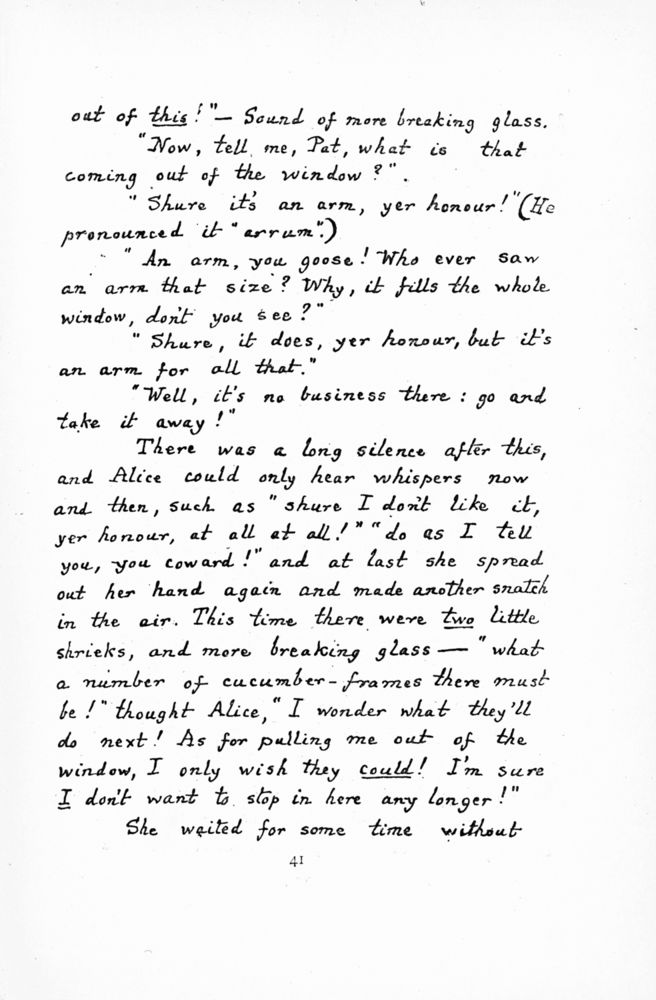 out of this!"— Sound of more breaking glass.
"Now, tell me, Pat, what is that
coming out of the window?".
"Shure it's an arm, yer honour!" (He
pronounced it "arrum".)
"An arm, you goose! Who ever saw
an arm that size? Why, it fills the whole
window, don't you see?"
"Shure, it does, yer honour, but it's
an arm for all that."
"Well, it's no business there: go and
take it away!"
There was a long silence after this,
and Alice could only hear whispers now
and then, such as "shure I don't like it,
yer honour, at all at all!" "do as I tell
you, you coward!" and at last she spread
out her hand again and made another snatch
in the air. This time there were two little
shrieks, and more breaking glass — "what
a number of cucumber-frames there must
be!" thought Alice, "I wonder what they'll
do next! As for pulling me out of the
window, I only wish they could! I'm sure
I don't want to stop in here any longer!"
She waited for some time without
41